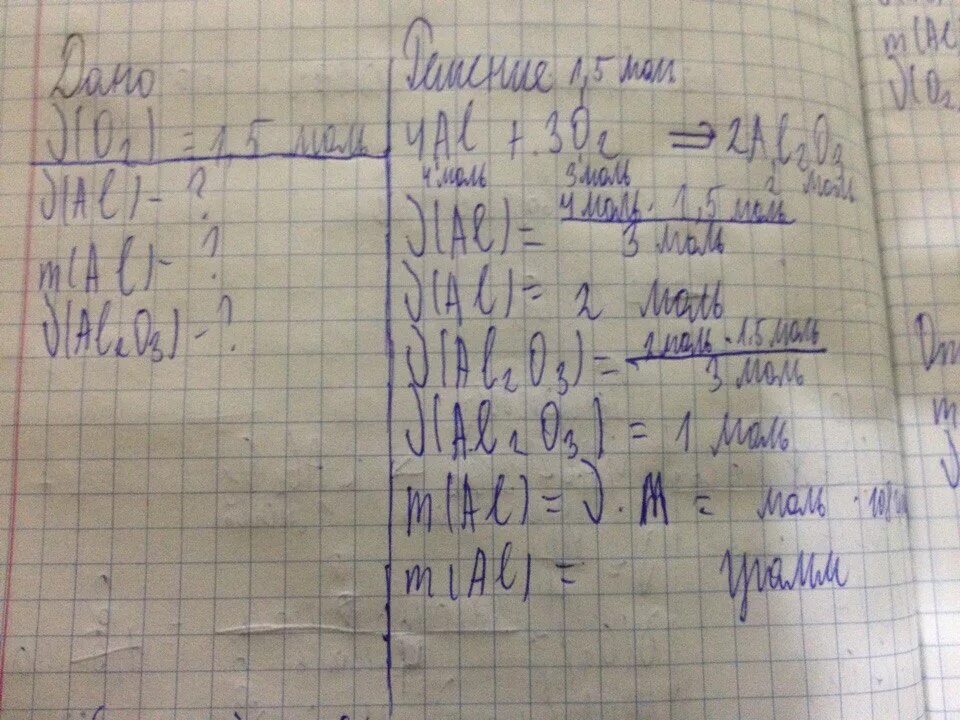 Дано
ν(O2) = 1,5 моль
ν(Al) - ?
m(Al) - ?
ν(Al2O3) - ?
Решение 1,5 мол
4Al + 3O2 ⇒ 2Al2O3
4 моль 3 моль 2 моль
ν(Al) = 4 моль · 1,5 моль
3 моль
ν(Al) = 2 моль
ν(Al2O3) = 2 моль · 1,5 моль
3 моль
ν(Al2O3) = 1 моль
m(Al) = ν · M = моль · 108
m(Al) = грамм
m(Al)
ν(O2
m
ν